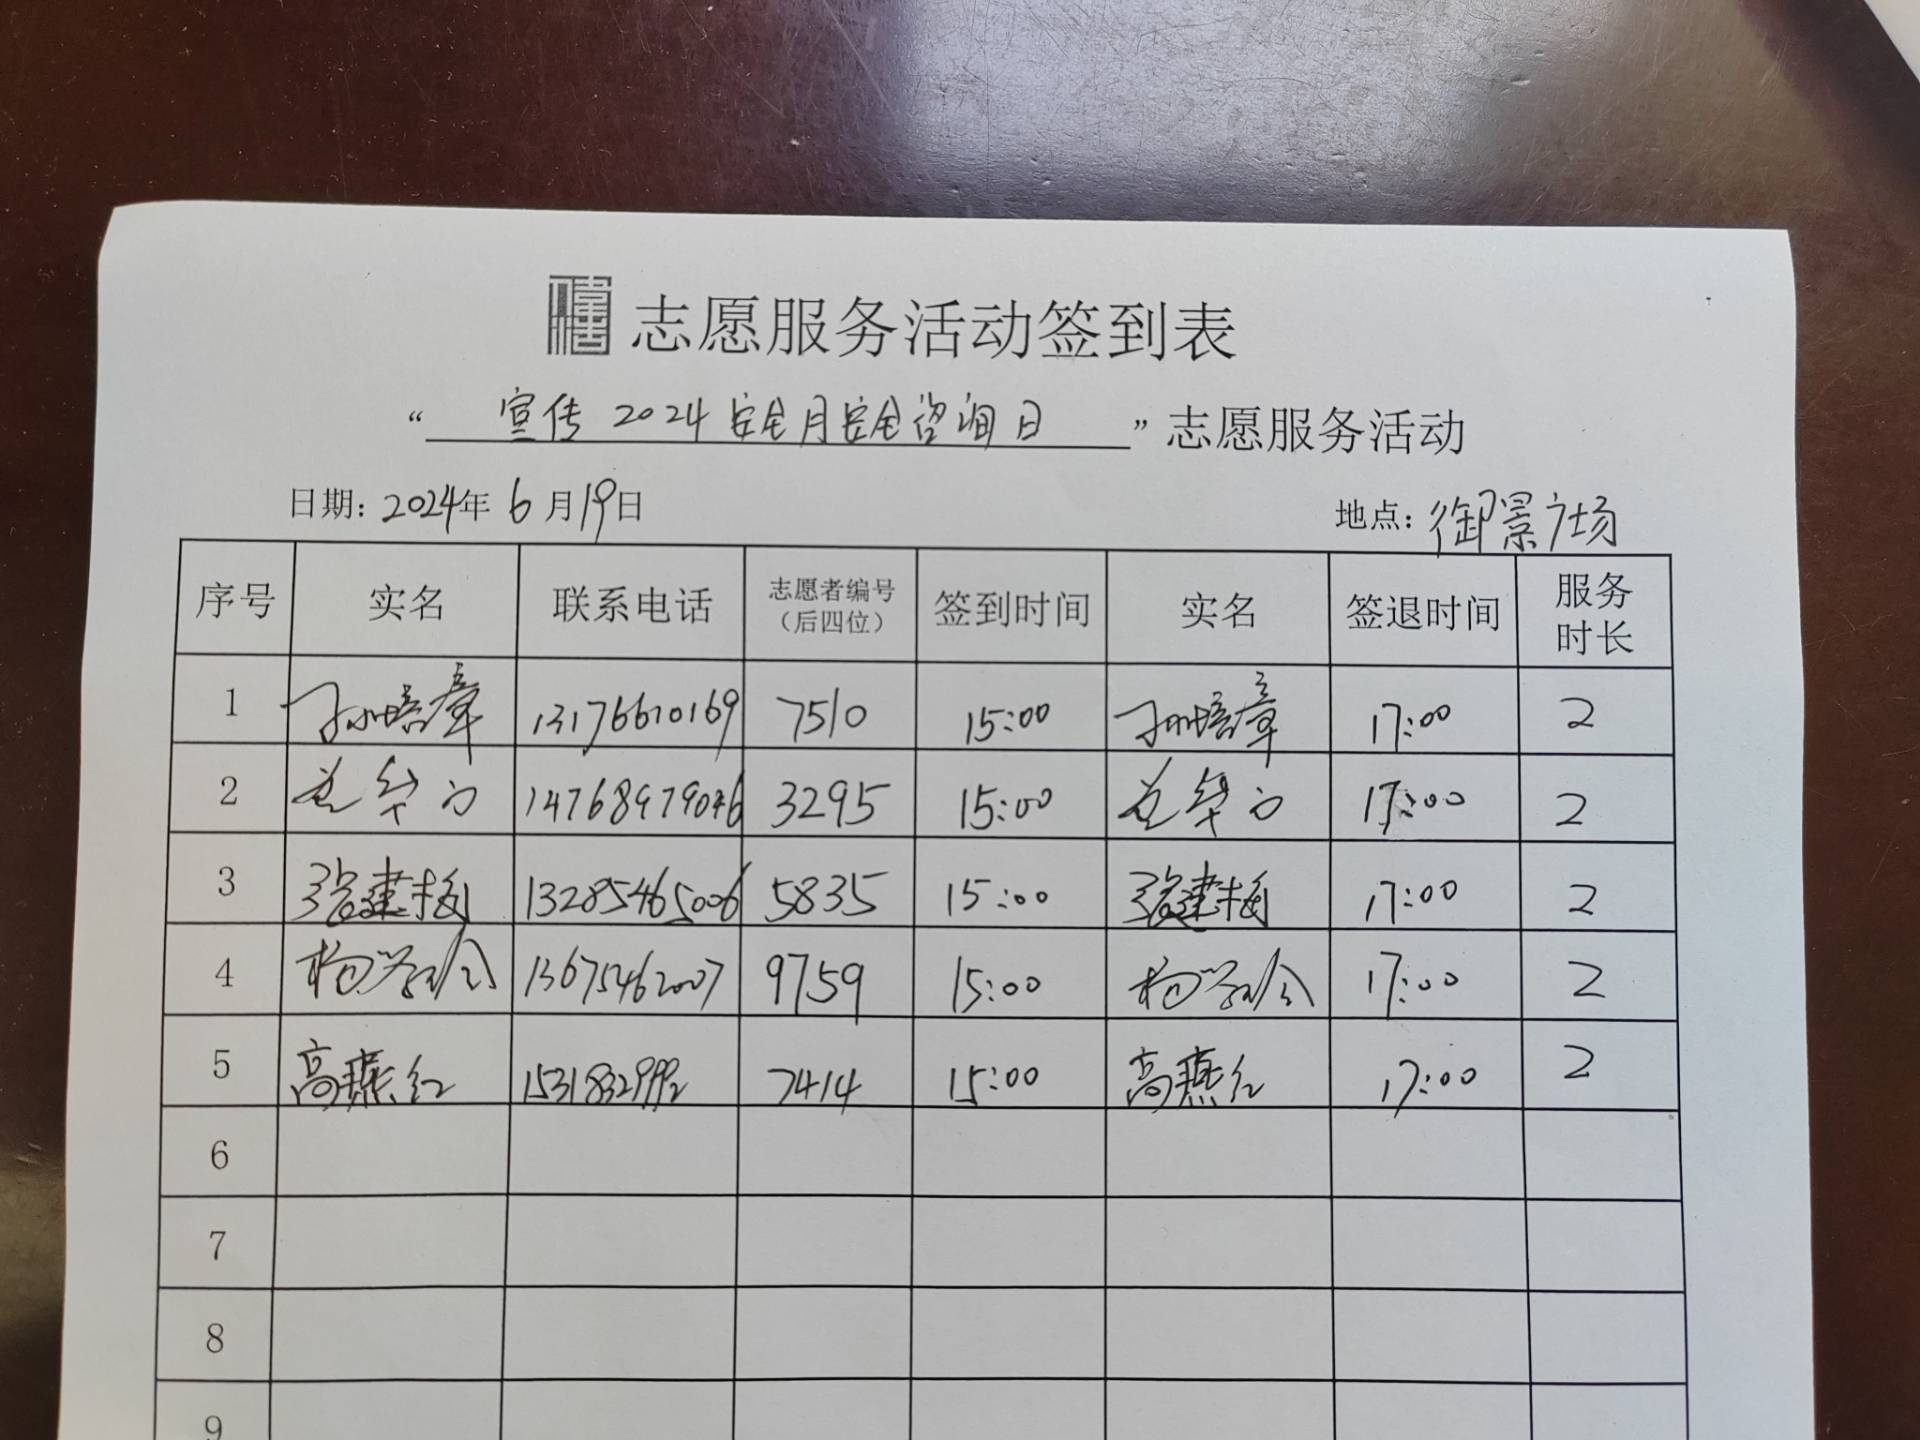 志愿服务活动签到表
“宣传2024安全月安全咨询日”志愿服务活动
日期：2024年6月19日 地点：御景广场
序号 实名 联系电话 志愿者编号（后四位） 签到时间 实名 签退时间 服务时长
1 孙培章 13176610169 7510 15:00 孙培章 17:00 2
2 14768979046 3295 15:00 17:00 2
3 强建梅 13285465006 5835 15:00 强建梅 17:00 2
4 杨学玲 13675462007 9759 15:00 杨学玲 17:00 2
5 高燕红 7414 15:00 高燕红 17:00 2
6
7
8
9